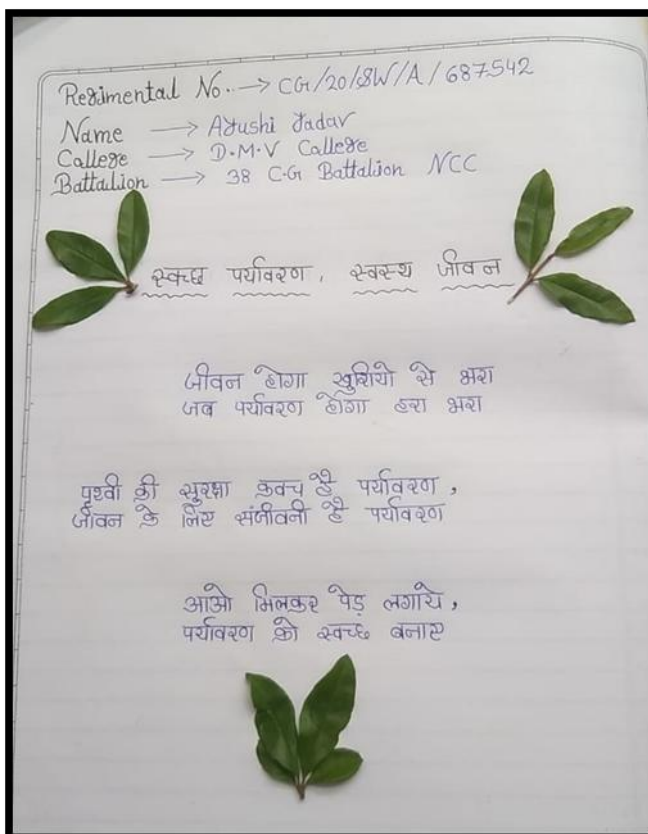 Regimental No. → CG/20/SW/A/687542
Name → Ayushi Yadav
College → D.M.V College
Battalion → 38 C.G Battalion NCC
स्वच्छ पर्यावरण, स्वस्थ जीवन
जीवन होगा खुशियो से भरा
जब पर्यावरण होगा हरा भरा
पृथ्वी की सुरक्षा कवच है पर्यावरण,
जीवन के लिए संजीवनी है पर्यावरण
आओ मिलकर पेड़ लगाये,
पर्यावरण को स्वच्छ बनाए